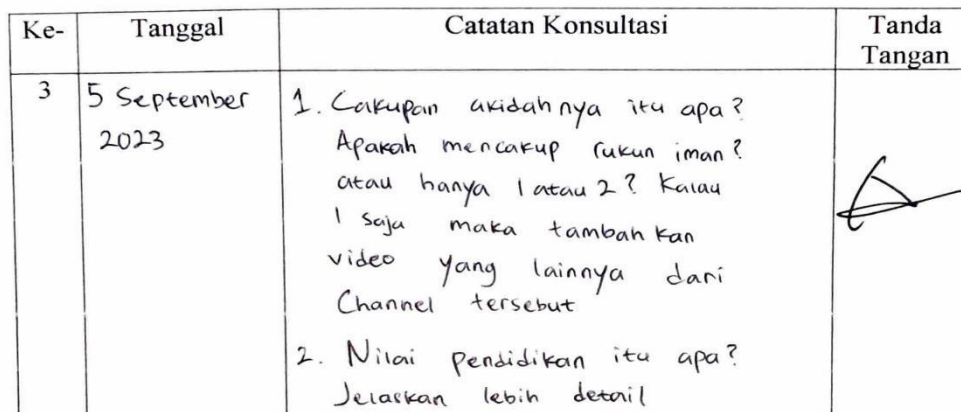 Ke- Tanggal Catatan Konsultasi Tanda Tangan
3 5 September 2023
1. Cakupan akidahnya itu apa?
Apakah mencakup rukun iman?
atau hanya 1 atau 2? Kalau
1 saja maka tambahkan
video yang lainnya dari
Channel tersebut
2. Nilai pendidikan itu apa?
Jelaskan lebih detail